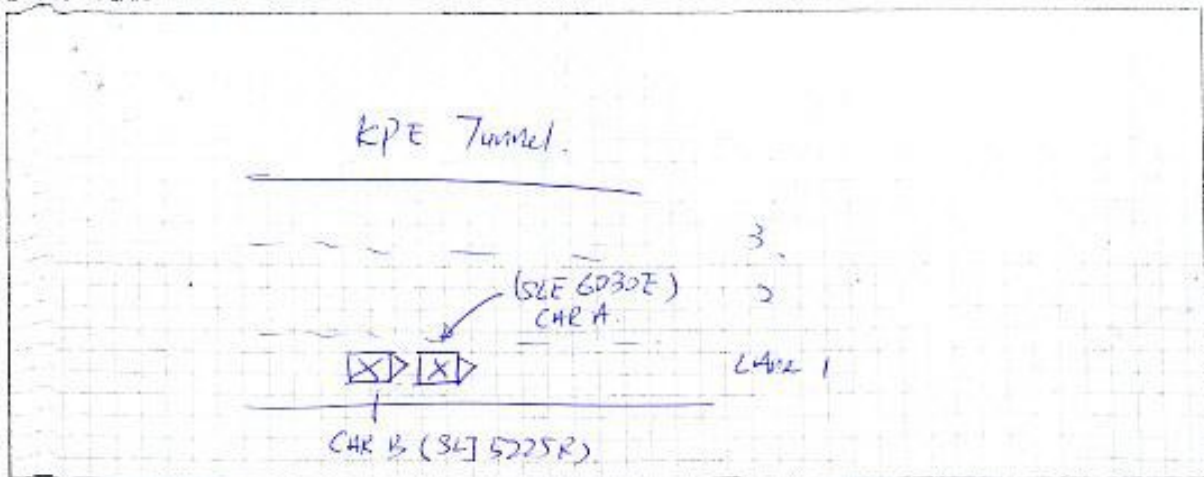 KPE Tunnel.
3
(SLE 6030E)
2
CAR A.
Lane 1
CAR B (SLJ 5225R)